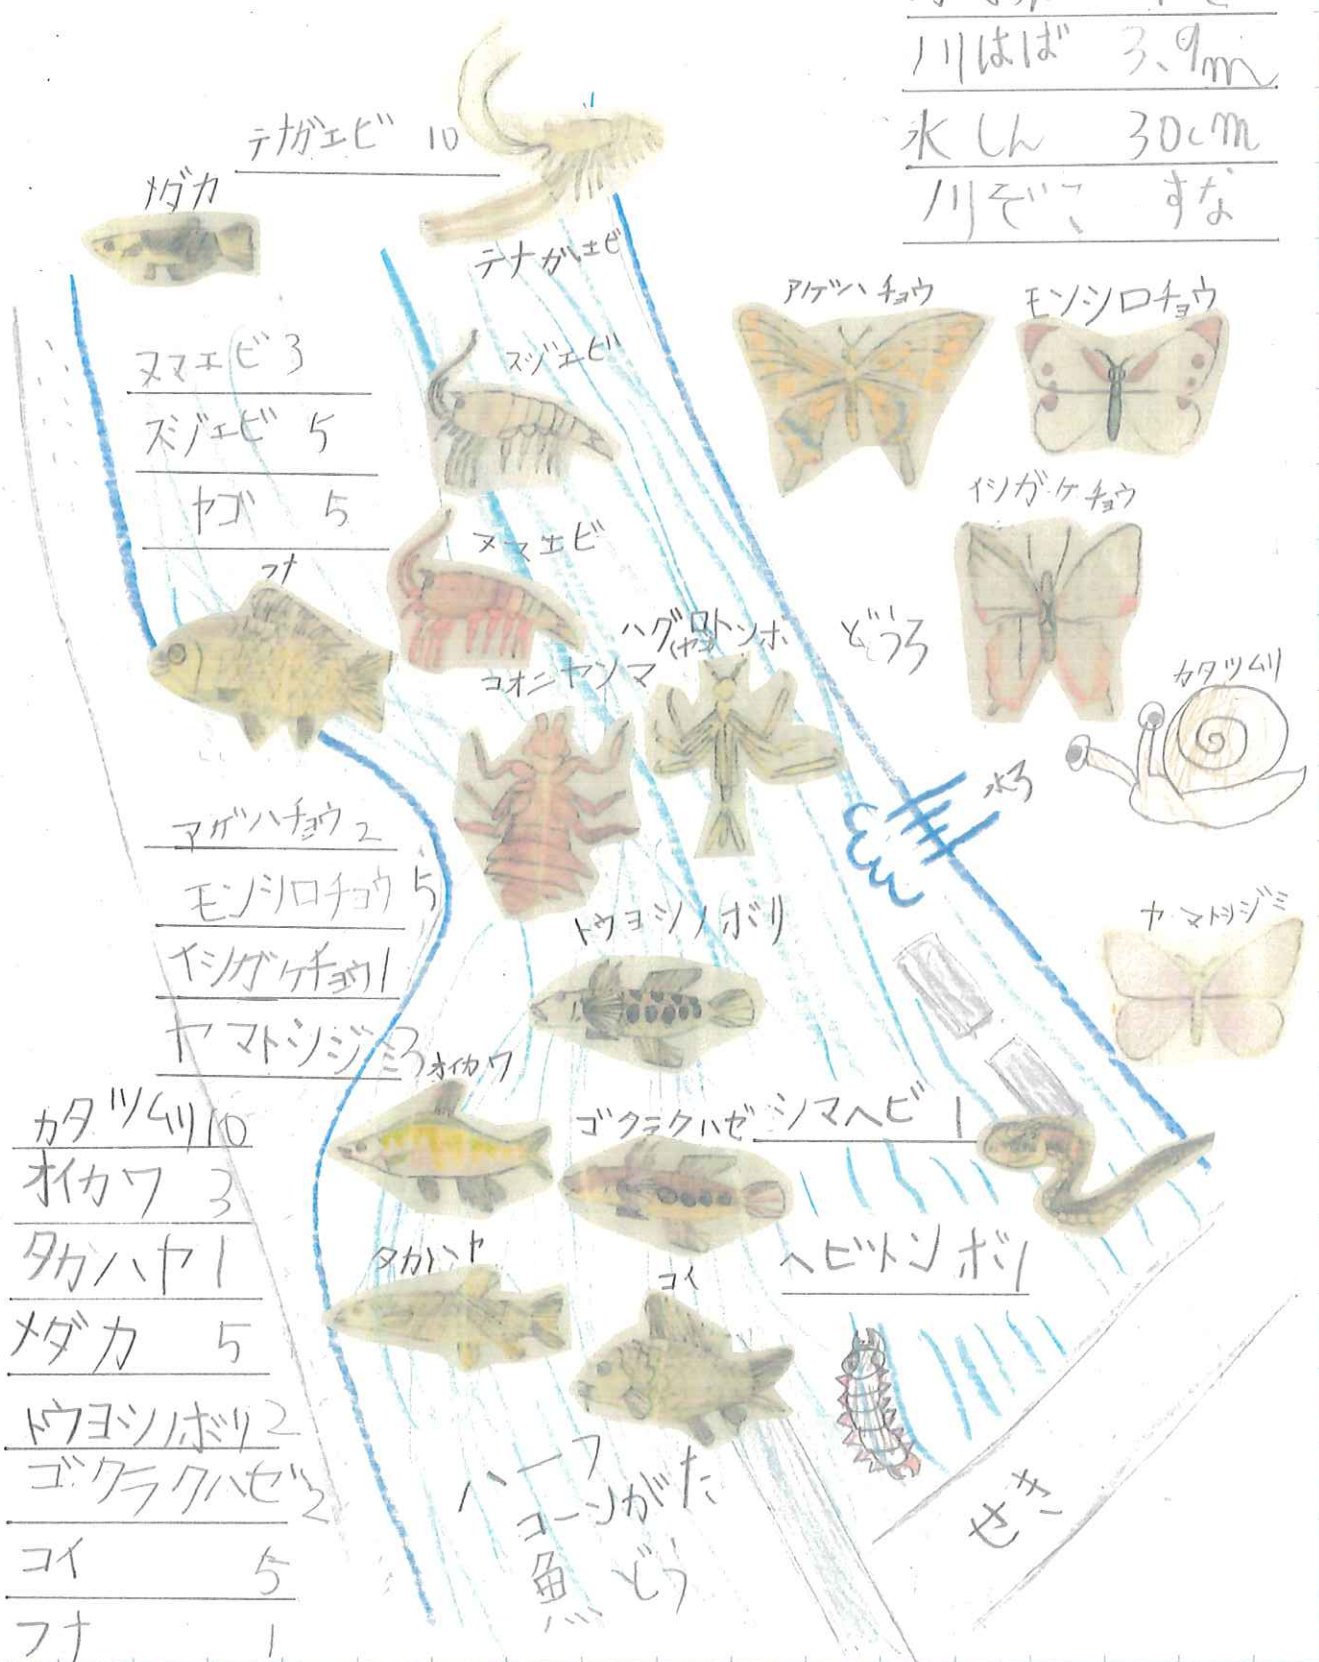 川はば 3.9m
水しん 30cm
川ぞこ すな
テナガエビ 10
メダカ
テナガエビ
アゲハチョウ
モンシロチョウ
ヌマエビ 3
スジエビ 5
ヤゴ 5
スジエビ
イシガケチョウ
フナ
ヌマエビ
ハグロトンボ
コオニヤンマ
どうろ
カタツムリ
水ろ
アゲハチョウ 2
モンシロチョウ 5
イシガケチョウ 1
ヤマトシジミ 3
トウヨシノボリ
ヤマトシジミ
オイカワ
ゴクラクハゼ
シマヘビ 1
カタツムリ 10
オイカワ 3
タカハヤ 1
メダカ 5
トウヨシノボリ 2
ゴクラクハゼ 2
コイ 5
フナ 1
タカハヤ
コイ
ヘビトンボ 1
ハーフ
コーンがた
魚どう
せき